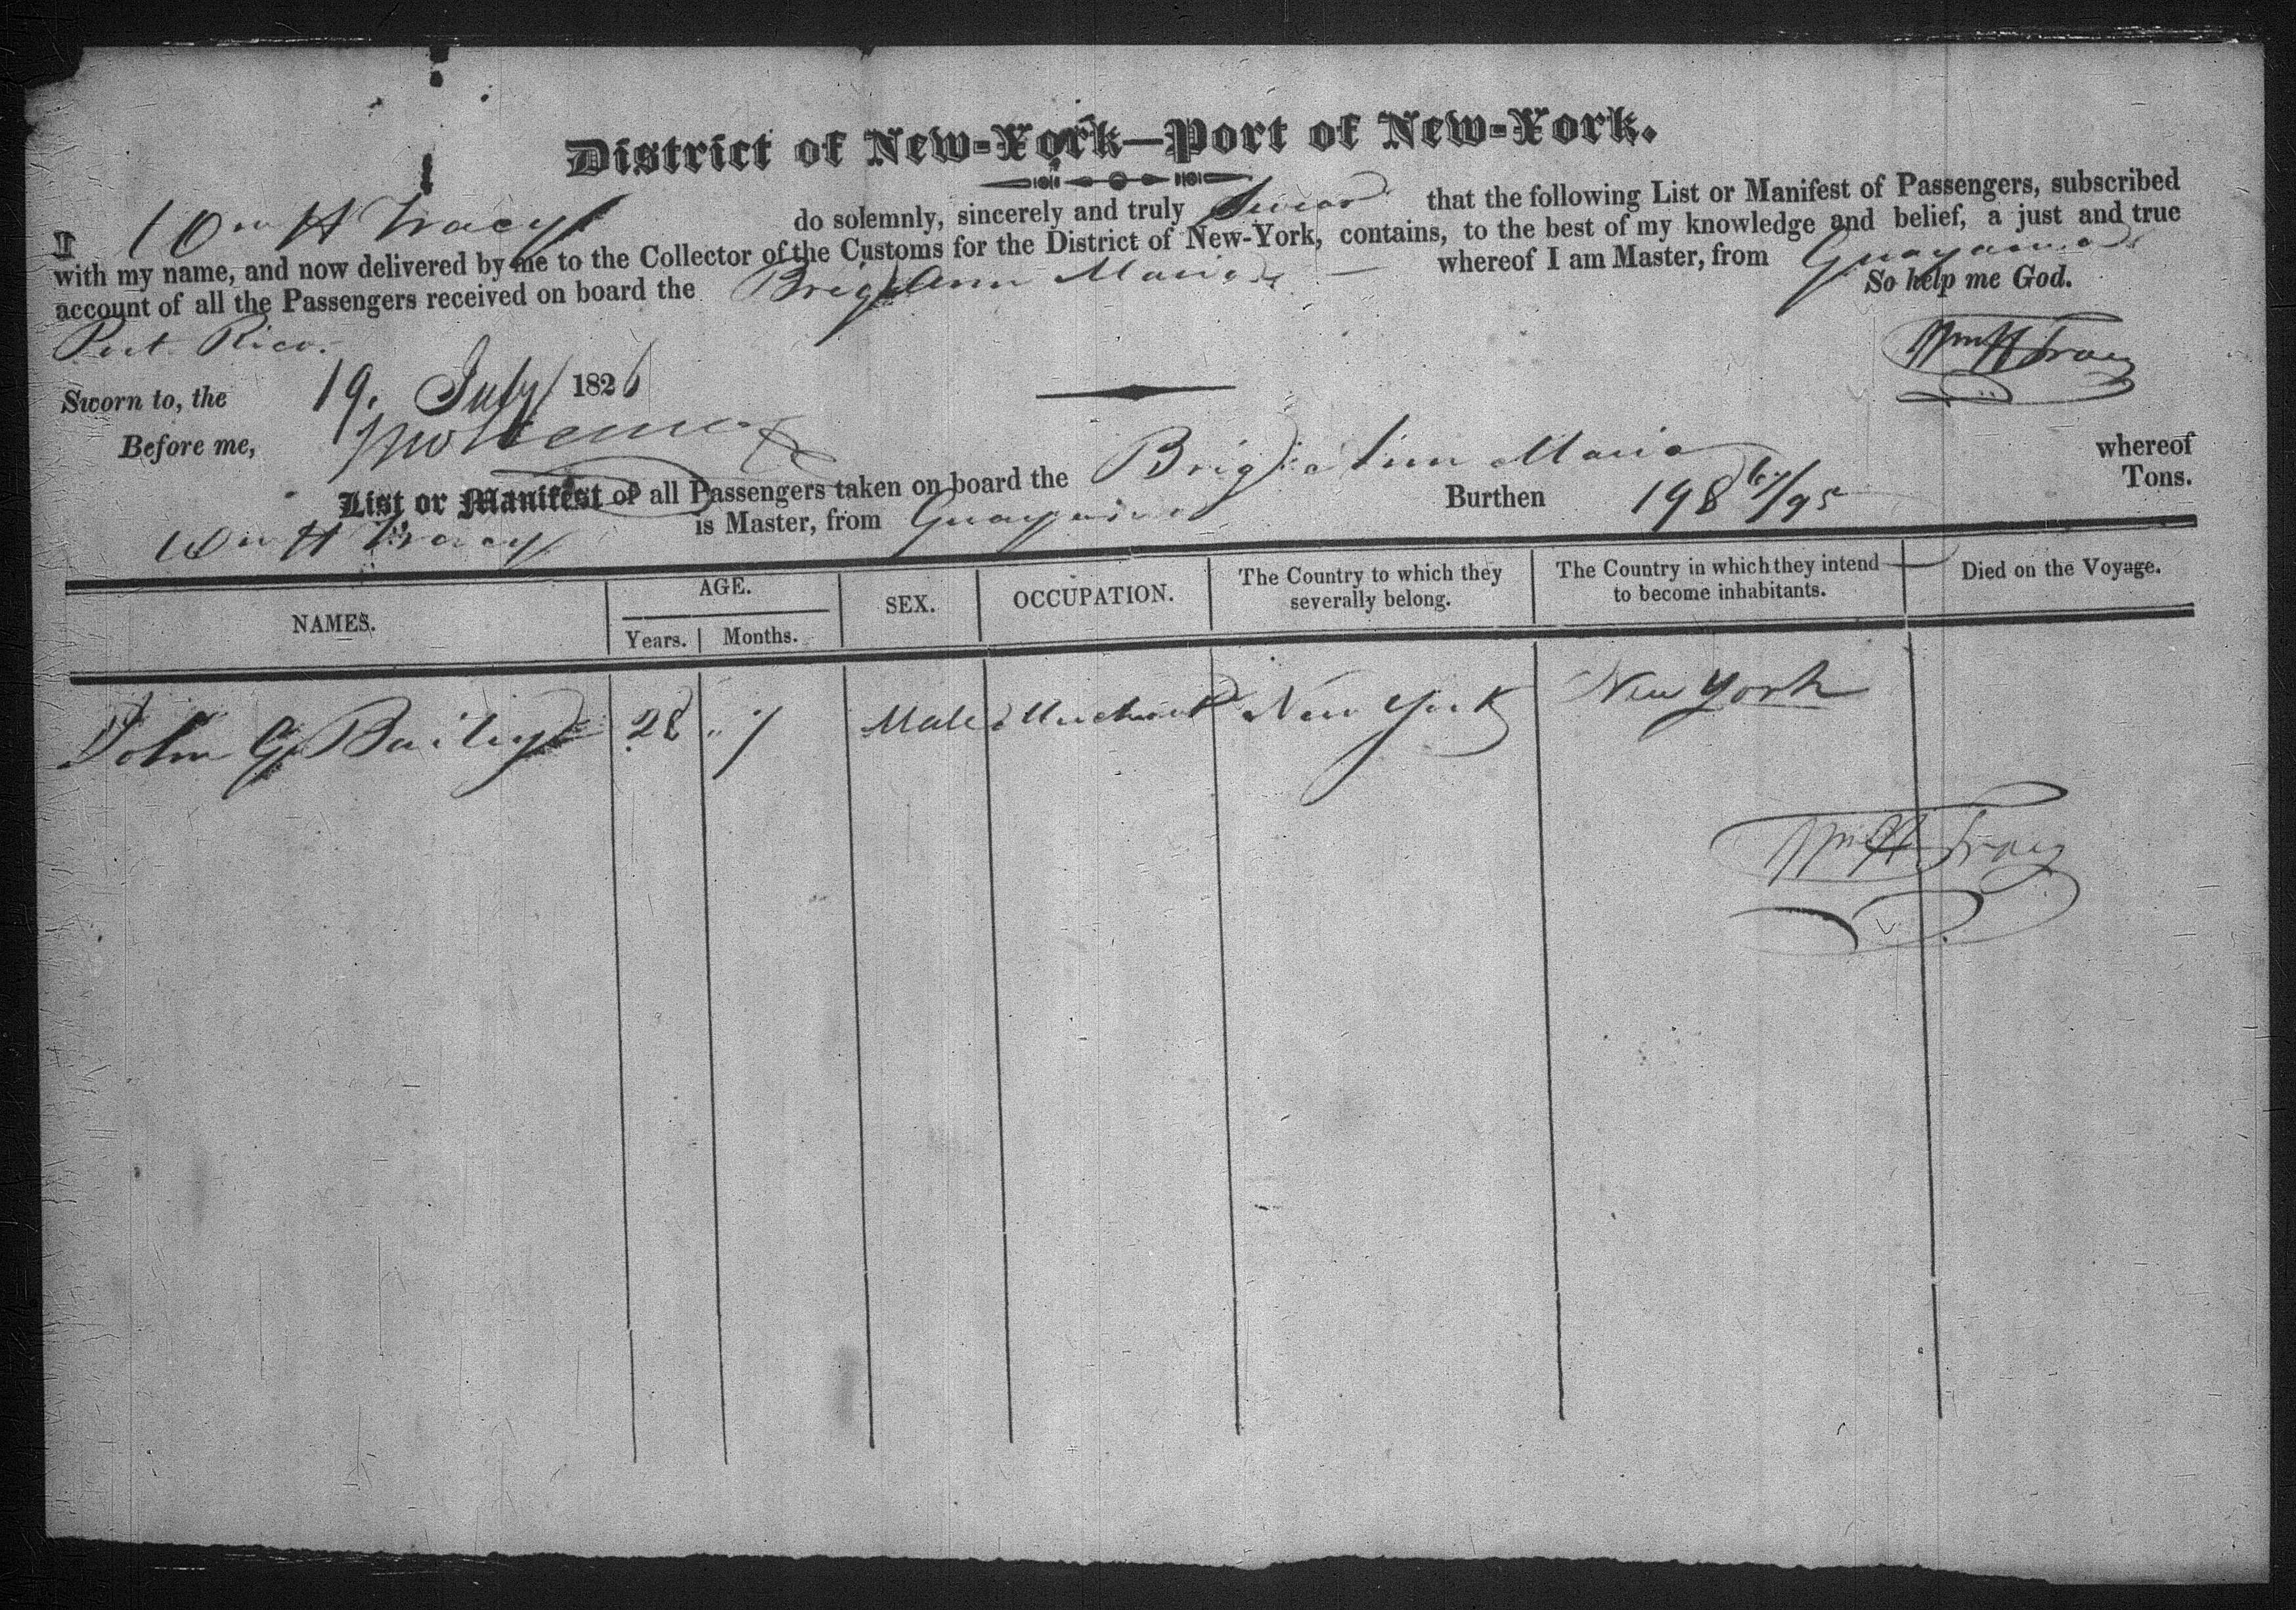 District of New-York—Port of New-York.
I Wm H Tracy do solemnly, sincerely and truly Swear that the following List or Manifest of Passengers, subscribed
with my name, and now delivered by me to the Collector of the Customs for the District of New-York, contains, to the best of my knowledge and belief, a just and true
account of all the Passengers received on board the Brig Ann Maria whereof I am Master, from Guayama
Port Rico. So help me God.
Wm H Tracy
Sworn to, the 19. July 1826
Before me,
List or Manifest of all Passengers taken on board the Brig Ann Maria whereof
Wm H Tracy is Master, from Guayama Burthen 198 /95 Tons.
NAMES. AGE. SEX. OCCUPATION. The Country to which they severally belong. The Country in which they intend to become inhabitants. Died on the Voyage.
Years. Months.
John G Bailey 28 " Male Merchant New York New York
Wm H Tracy